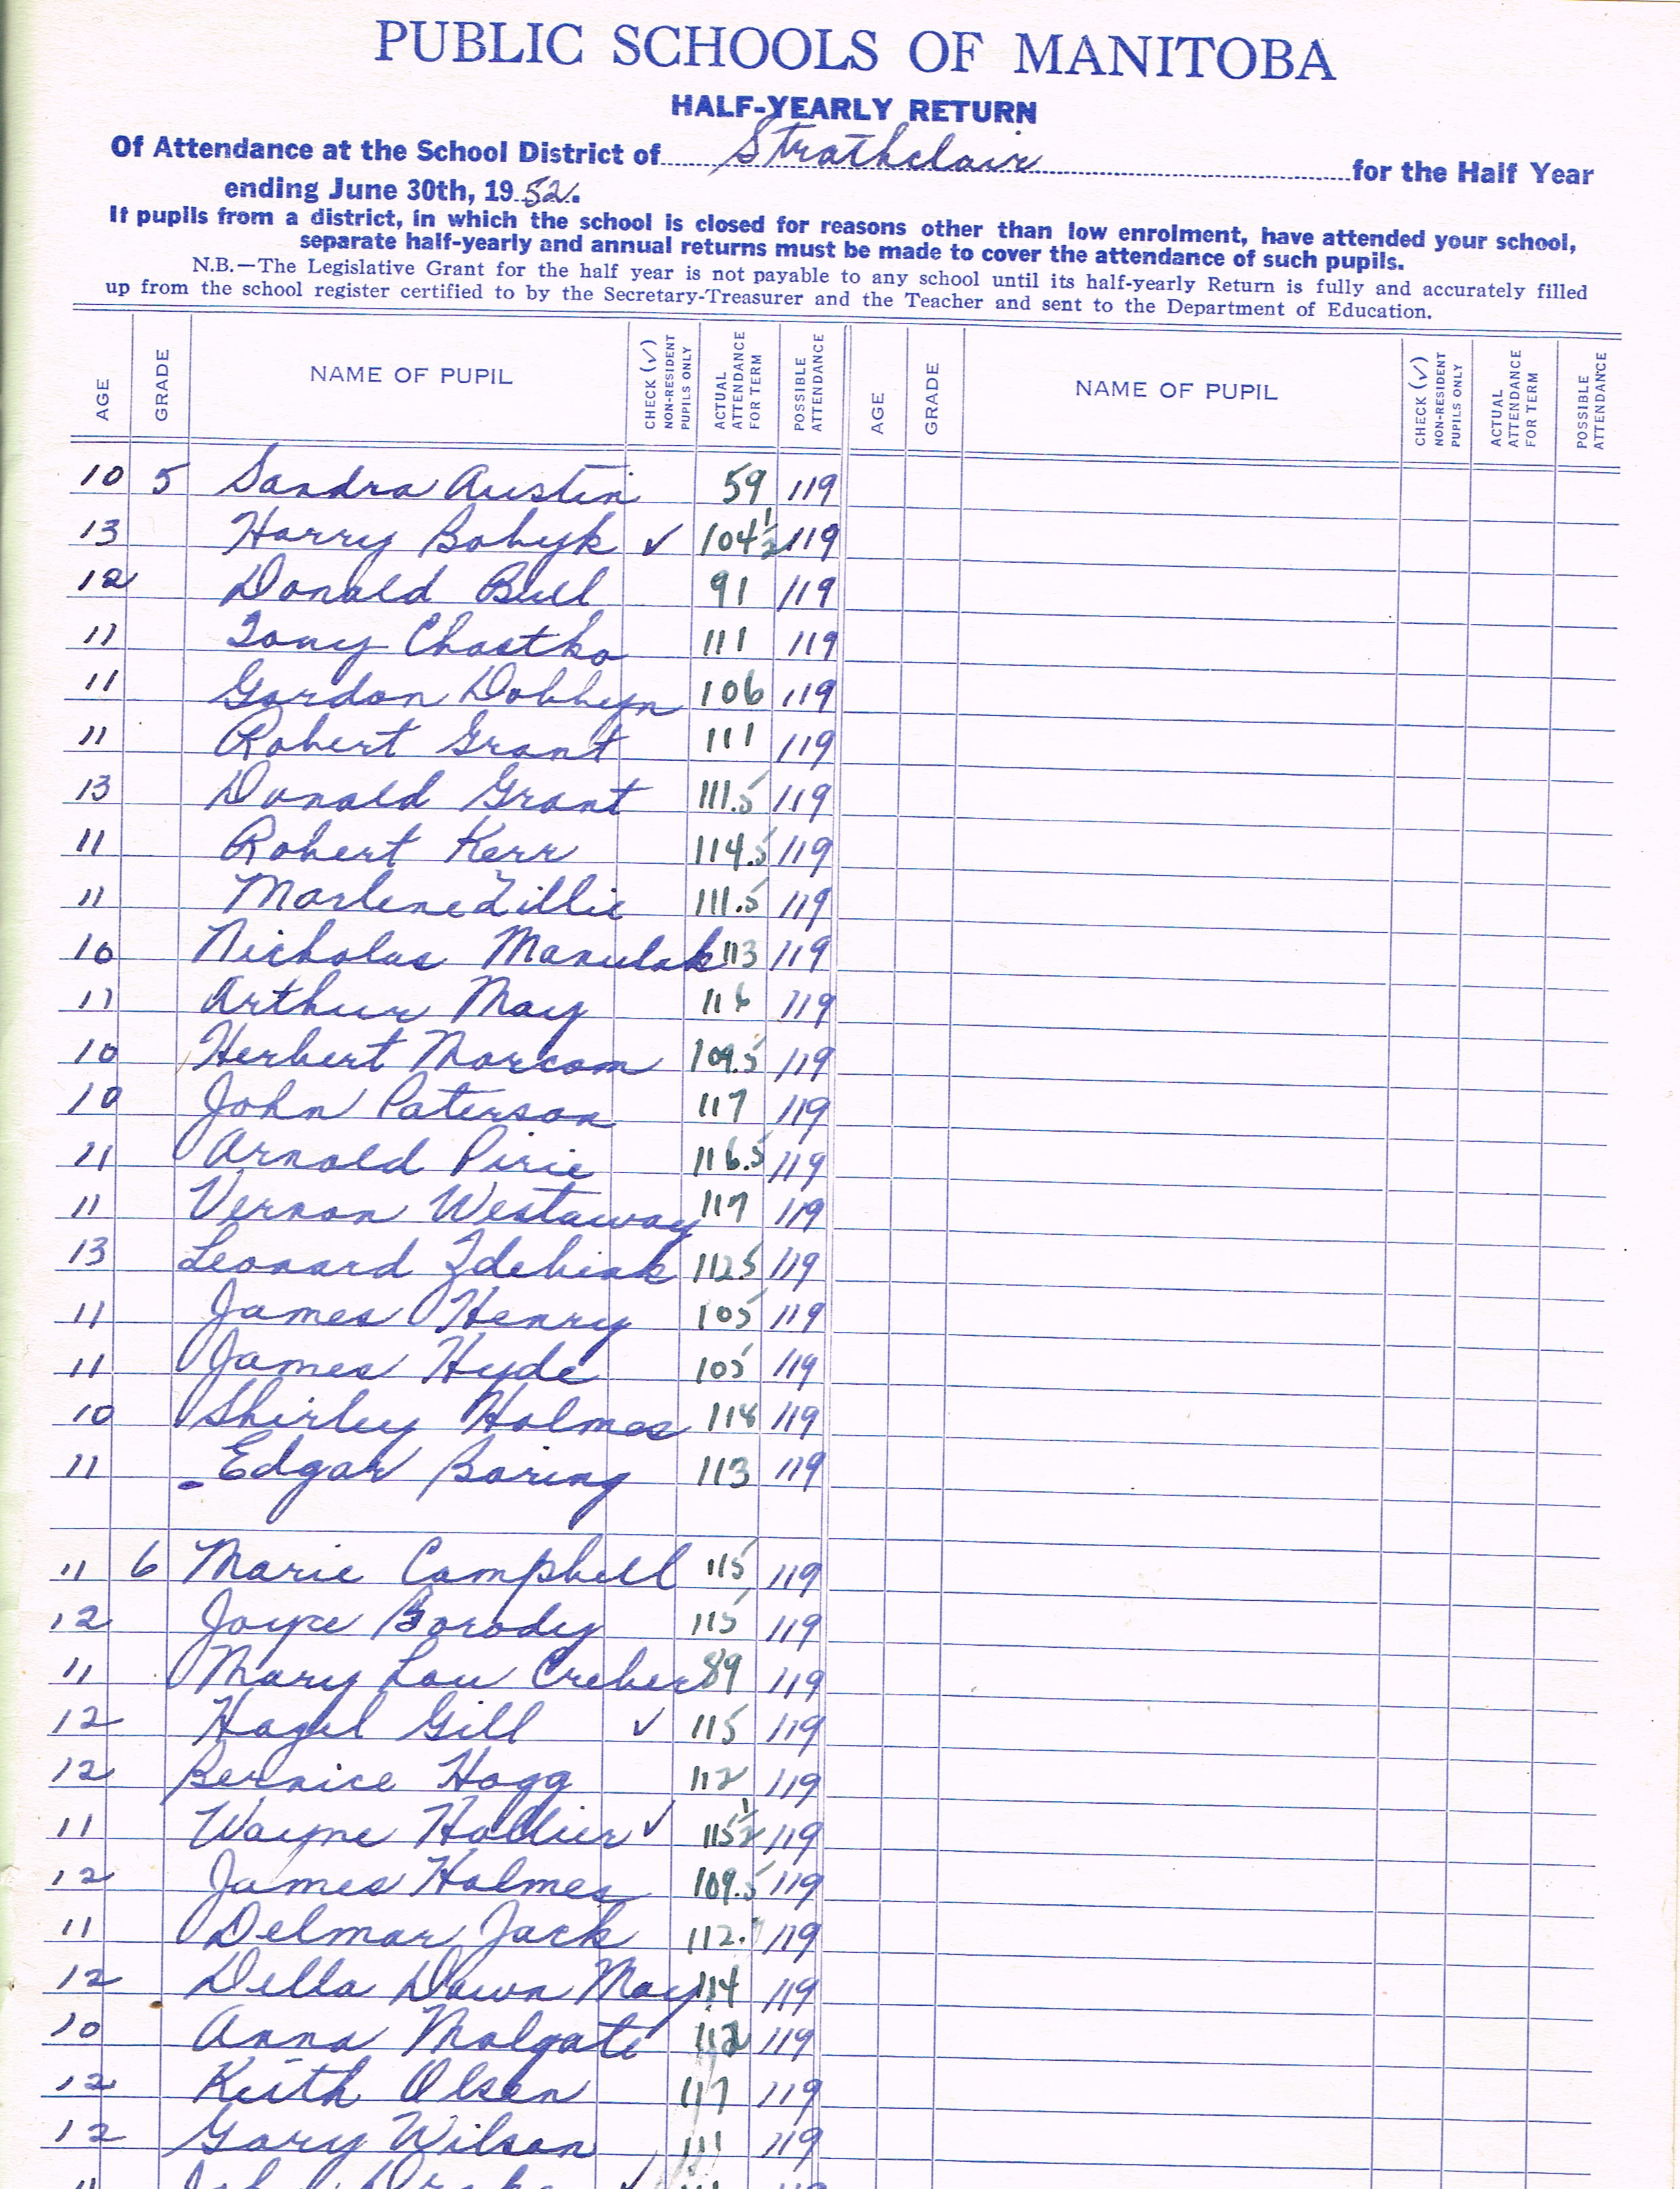 PUBLIC SCHOOLS OF MANITOBA
HALF-YEARLY RETURN
Of Attendance at the School District of Strathclair for the Half Year
ending June 30th, 1952.
If pupils from a district, in which the school is closed for reasons other than low enrolment, have attended your school,
separate half-yearly and annual returns must be made to cover the attendance of such pupils.
N.B.—The Legislative Grant for the half year is not payable to any school until its half-yearly Return is fully and accurately filled
up from the school register certified to by the Secretary-Treasurer and the Teacher and sent to the Department of Education.
AGE GRADE NAME OF PUPIL CHECK (✓) NON-RESIDENT PUPILS ONLY ACTUAL ATTENDANCE FOR TERM POSSIBLE ATTENDANCE AGE GRADE NAME OF PUPIL CHECK (✓) NON-RESIDENT PUPILS ONLY ACTUAL ATTENDANCE FOR TERM POSSIBLE ATTENDANCE
10 5 Sandra Austin 59 119
13 Harry Bobyk ✓ 104½ 119
12 Donald Bull 91 119
11 Tony Chastko 111 119
11 Gordon Dobbyn 106 119
11 Robert Grant 111 119
13 Donald Grant 111.5 119
11 Robert Kerr 114.5 119
11 Marlene Lillie 111.5 119
10 Nicholas Manulak 113 119
11 Arthur May 116 119
10 Herbert Morcom 109.5 119
10 John Paterson 117 119
11 Arnold Pirie 116.5 119
11 Vernon Westaway 117 119
13 Leonard Zdebiak 112.5 119
11 James Henry 105 119
11 James Hyde 105 119
10 Shirley Holmes 118 119
11 Edgar Boring 113 119
11 6 Marie Campbell 115 119
12 Joyce Borody 115 119
11 Mary Lou Creber 89 119
12 Hazel Gill ✓ 115 119
12 Bernice Hogg 112 119
11 Wayne Hollier ✓ 115½ 119
12 James Holmes 109.5 119
11 Delmar Jack 112. 119
12 Della Dawn May 114 119
10 Anna Molgate 112 119
12 Keith Olsen 117 119
12 Gary Wilson 111 119
11 ✓ 119